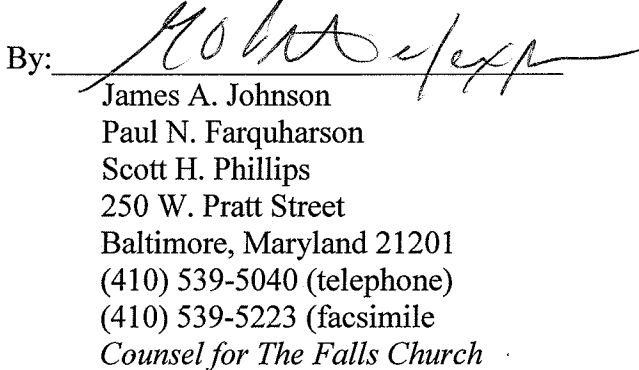 By:
James A. Johnson
Paul N. Farquharson
Scott H. Phillips
250 W. Pratt Street
Baltimore, Maryland 21201
(410) 539-5040 (telephone)
(410) 539-5223 (facsimile
Counsel for The Falls Church